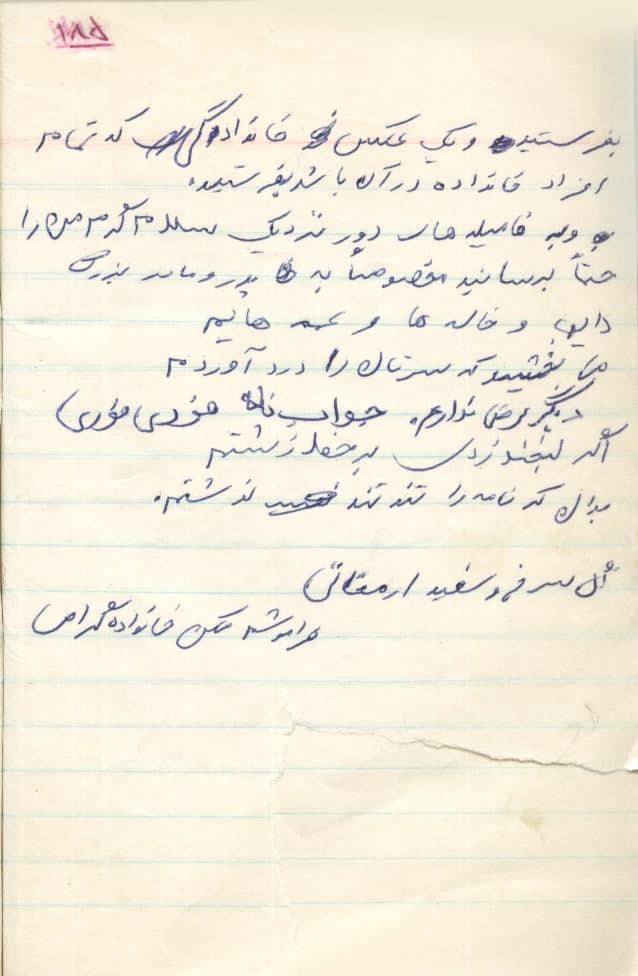 ۲۸۵
بفرستید و یک عکس خانوادگی که تمام
افراد خانواده در آن باشد بفرستید.
و به فامیلهای دور نزدیک سلام گرم من را
حتماً برسانید مخصوصاً به پدر و مادر بزرگ
دایی و خاله ها و عمه هایم
ببخشید که سرتان را درد آوردم
دیگر عرضی ندارم. جواب نامه فوری فوری
اگر لبخند زدی به خط زشتم
بدان که نامه را تند تند نوشتم.
گل سرخ و سفید ارمغانی
فراموشم مکن خانواده گرامی